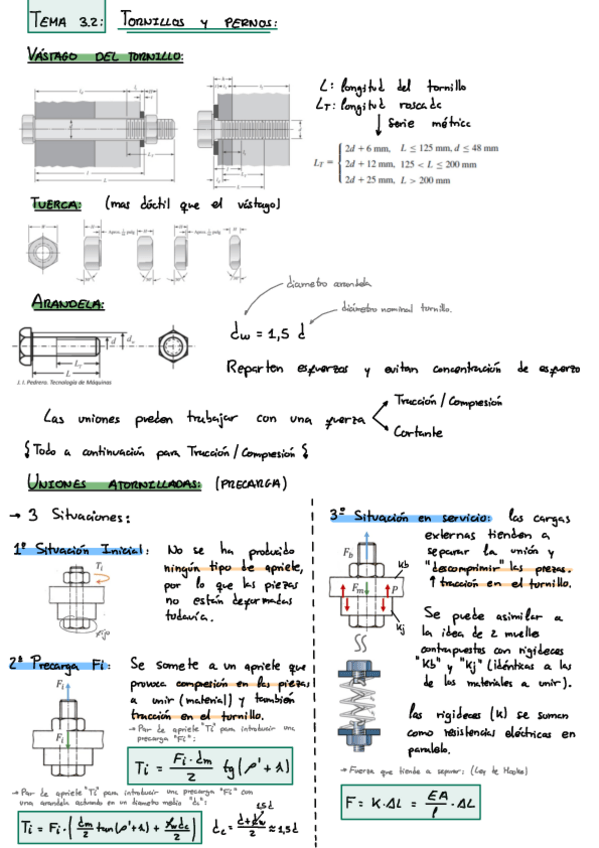 TEMA 3.2: TORNILLOS Y PERNOS:
VÁSTAGO DEL TORNILLO:
L: longitud del tornillo
LT: longitud roscada
↓ Serie métrica
LT = { 2d + 6 mm, L ≤ 125 mm, d ≤ 48 mm
2d + 12 mm, 125 < L ≤ 200 mm
2d + 25 mm, L > 200 mm
TUERCA: (mas dúctil que el vástago)
ARANDELA:
diametro arandela
diámetro nominal tornillo.
dw = 1,5 d
J. I. Pedrero. Tecnología de Máquinas
Reparten esfuerzos y evitan concentración de esfuerzo
Las uniones pueden trabajar con una fuerza
Tracción / Compresión
Cortante
{ Todo a continuación para Tracción / Compresión }
UNIONES ATORNILLADAS: (PRECARGA)
→ 3 Situaciones:
1ª Situación Inicial: No se ha producido
ningún tipo de apriete,
por lo que las piezas
no están deformadas
todavía.
Ti
Fijo
2ª Precarga Fi: Se somete a un apriete que
provoca compresión en las piezas
a unir (material) y también
tracción en el tornillo.
→ Par de apriete "Ti" para introducir una
precarga "Fi":
Ti = Fi · dm / 2 tg (ρ' + λ)
Fi
Fi
→ Par de apriete "Ti" para introducir una precarga "Fi" con
una arandela actuando en un diametro medio "dc":
Ti = Fi · ( dm / 2 tan (ρ' + λ) + dc / 2 )
dc = d + dw / 2 ≈ 1,5 d
1,5d
3ª Situación en servicio: las cargas
externas tienden a
separar la unión y
"descomprimir" las piezas.
↑ tracción en el tornillo.
Fb
Kb
Fm
P
Kj
Se puede asimilar a
la idea de 2 muelles
contrapuestos con rigideces
"Kb" y "Kj" (idénticas a las
de los materiales a unir).
las rigideces (K) se suman
como resistencias eléctricas en
paralelo.
→ Fuerza que tiende a separar: (Ley de Hooke)
F = K · ΔL = EA / l · ΔL